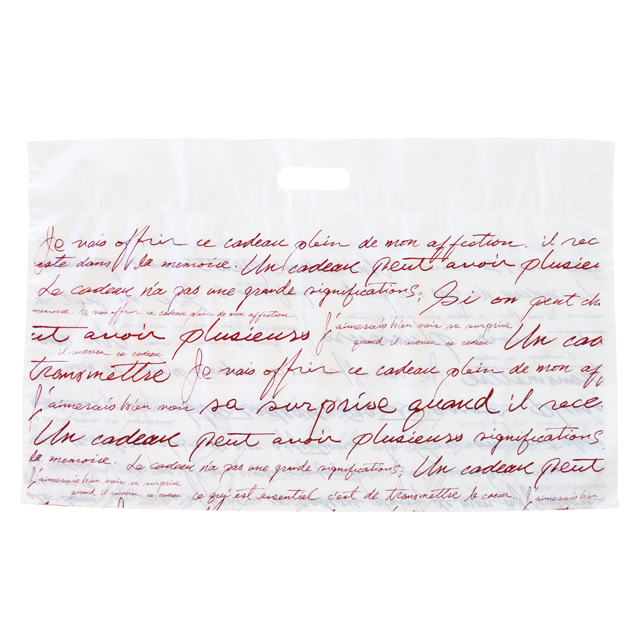 Je vais offrir ce cadeau plein de mon affection. il rec
este dans la memoire. Un cadeau peut avoir plusieu
Le cadeau n'a pas une grande significations; Si on peut ch
memoire. Je vais offrir ce cadeau plein de mon affection
ut avoir plusieurs j'aimerais bien voir sa surprise
quand il recever ce cadeau Un cad
il recever ce cadeau
transmettre Je vais offrir ce cadeau plein de mon aff
j'aimerais bien voir sa surprise quand il rece
Un cadeau peut avoir plusieurs significations
la memoire. Le cadeau n'a pas une grande significations; Un cadeau peut
j'aimerais bien voir sa surprise
quand il recever ce cadeau ce qu'est essentiel c'est de transmettre le coeur. j'aimerais bien